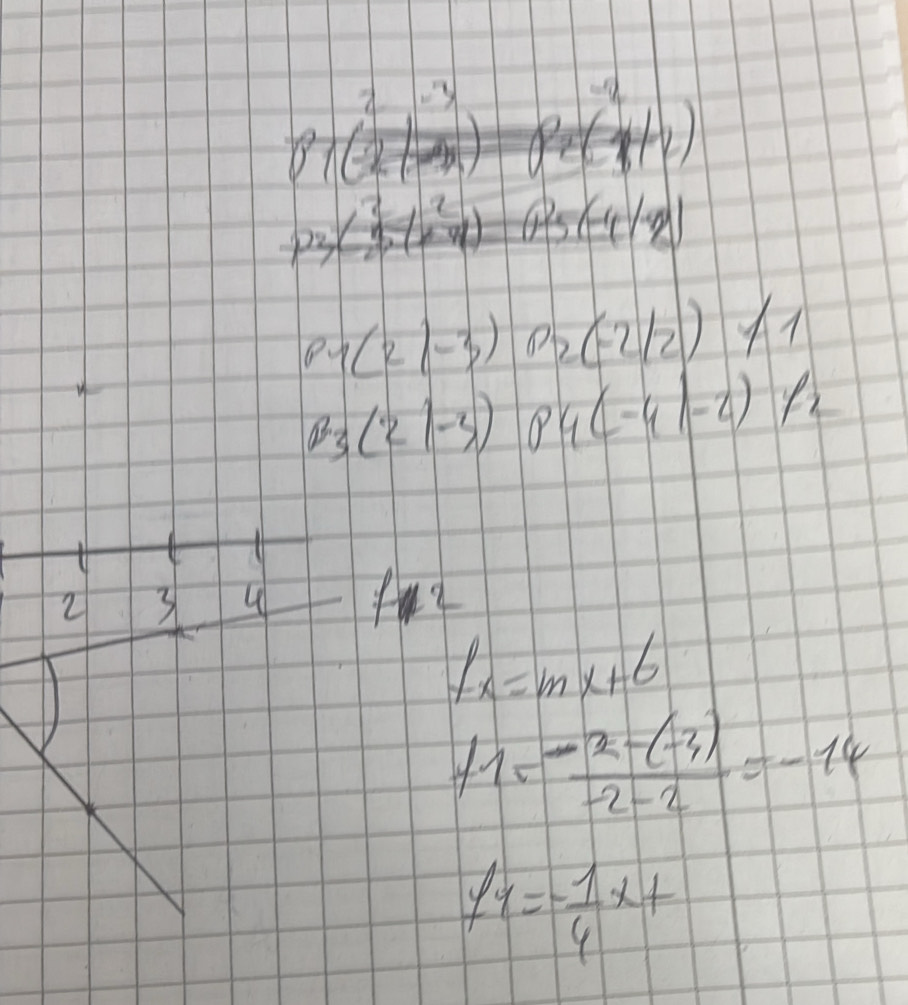 P1(2|-3) P2(-2|2) f1
P3(2|-3) P4(-4|-2) f2
2 3 4
f 2
fx=mx+b
f1=
-2-(-3)
-2-2
=-14
f1=-1/4x+